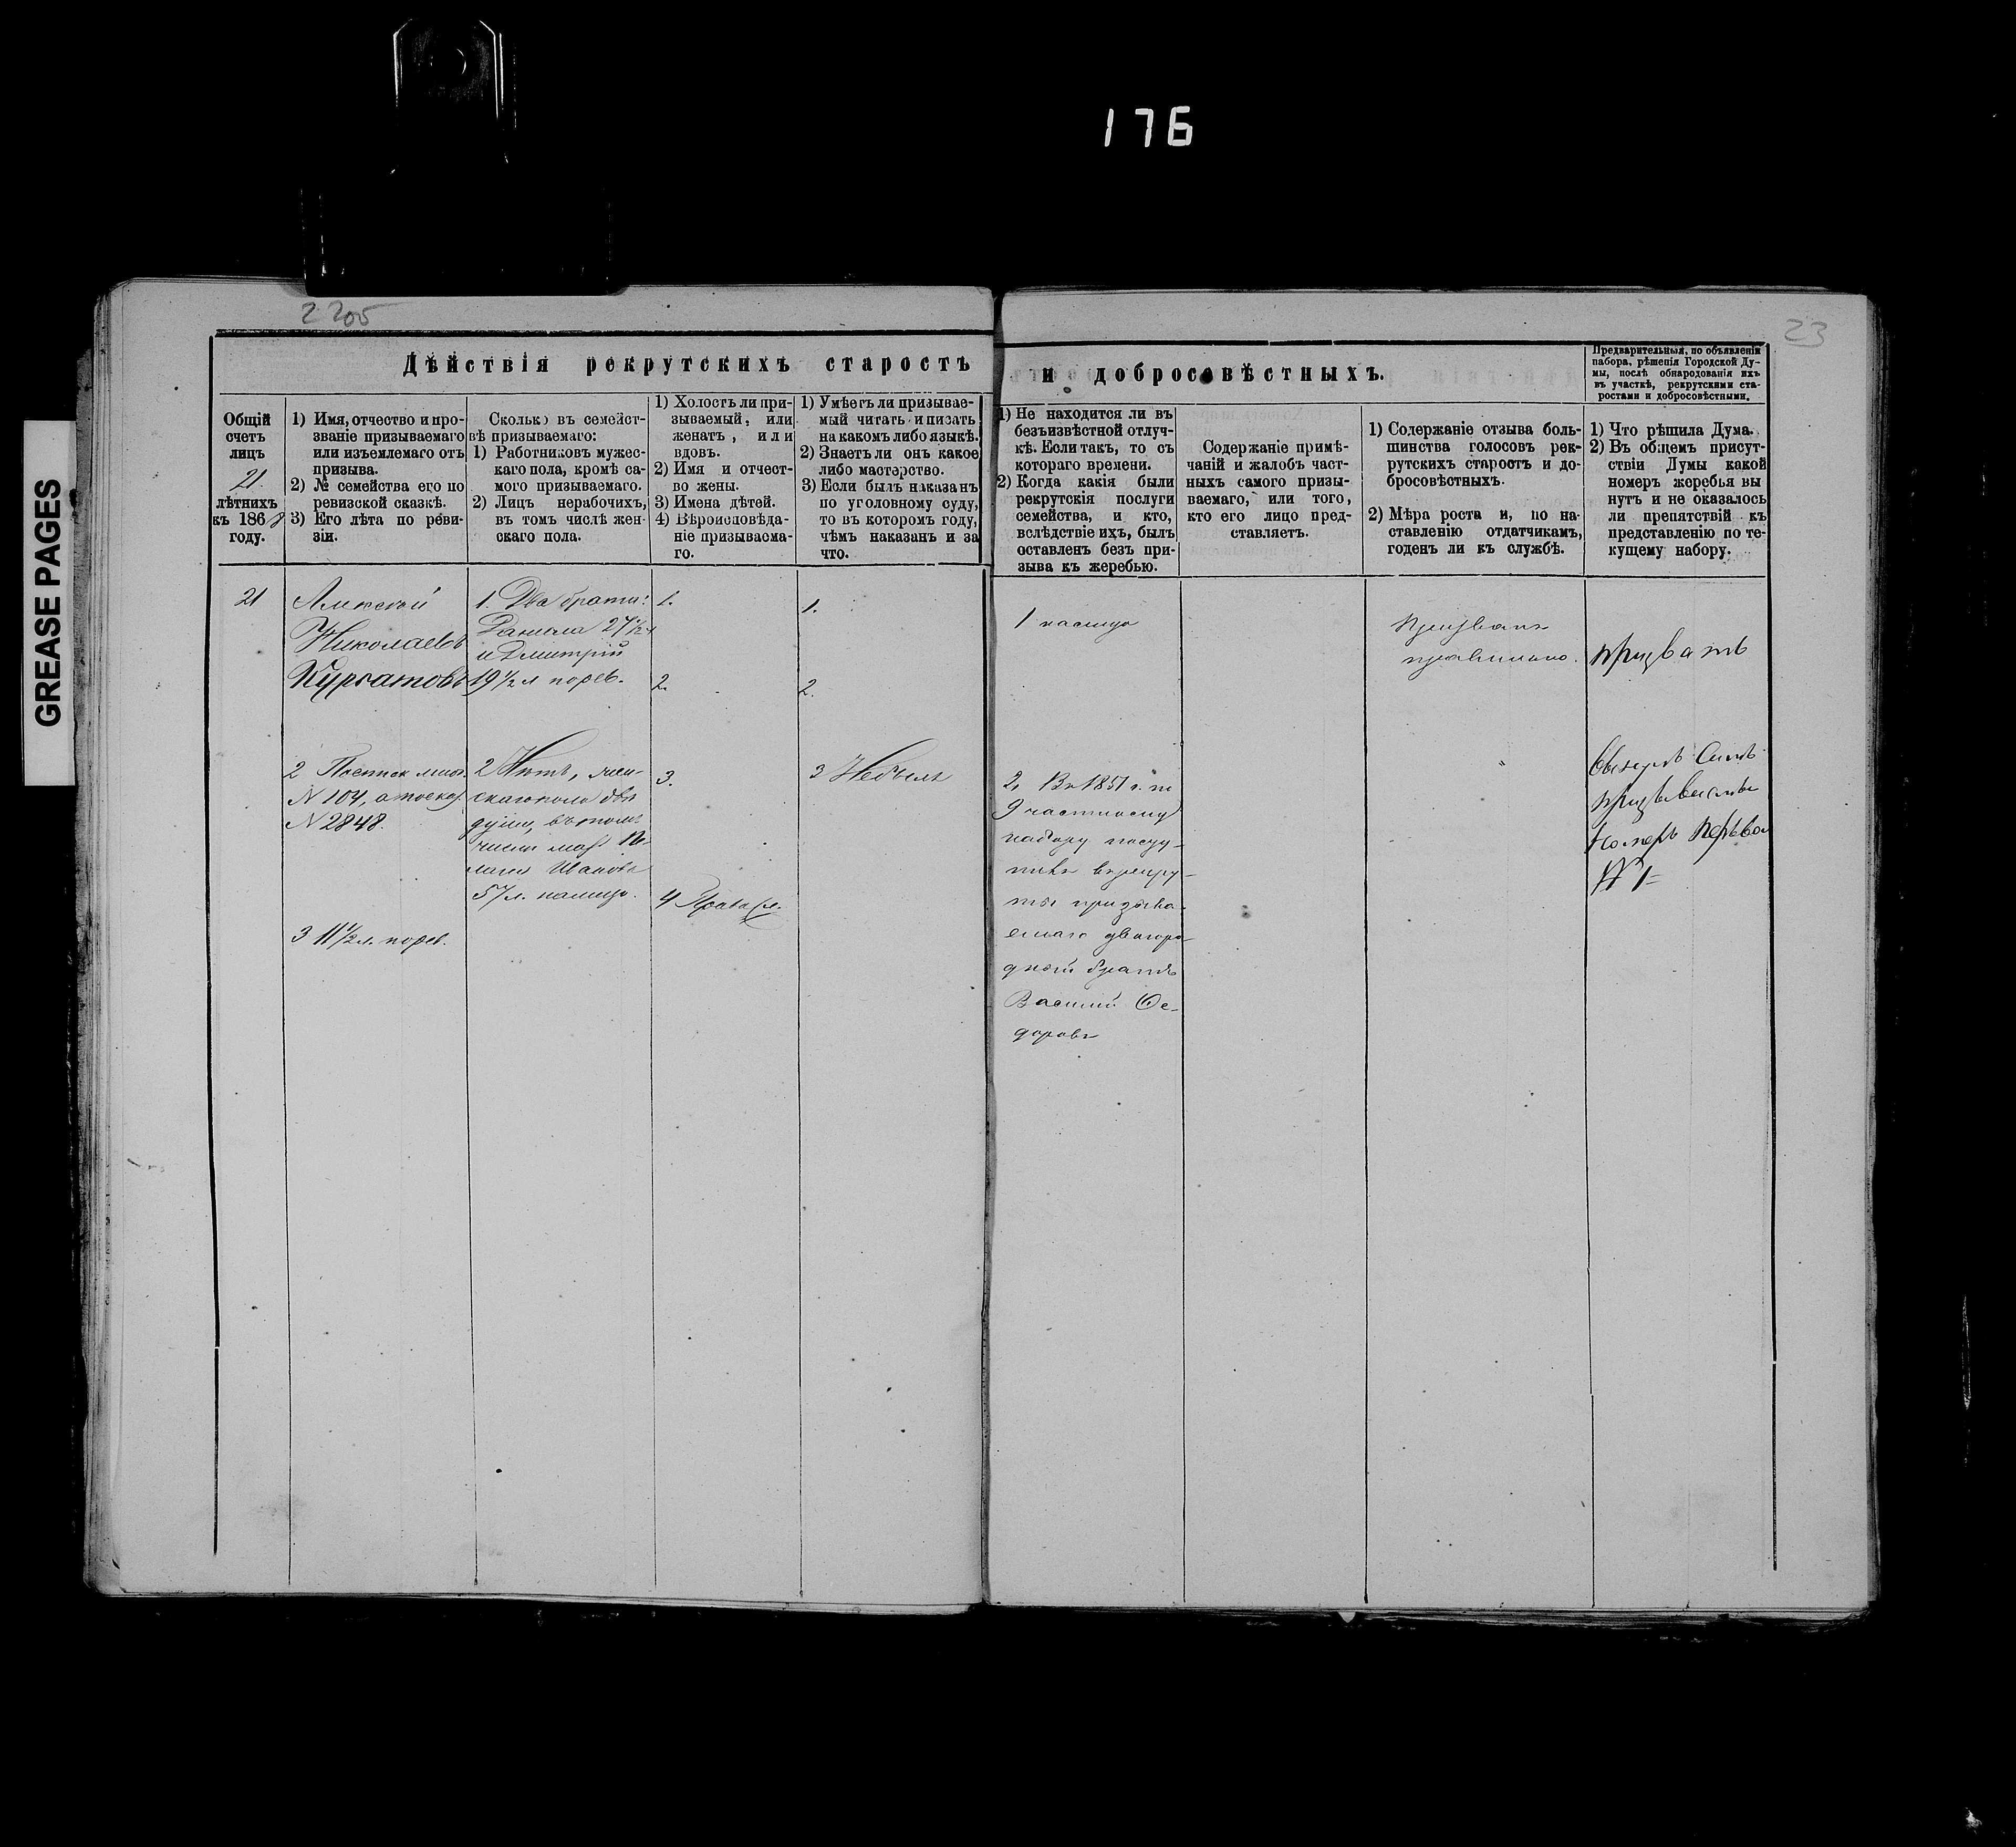 176
GREASE PAGES
2205
23
Дѣйствія рекрутскихъ старостъ
и добросовѣстныхъ.
Предварительныя, по объявленіи
набора, рѣшенія Городской Ду-
мы, послѣ обнародованія ихъ
въ участкѣ, рекрутскими ста-
ростами и добросовѣстными.
Общій
счетъ
лицъ
21
лѣтнихъ
къ 1868
году.
1) Имя, отчество и про-
званіе призываемаго
или изъемлемаго отъ
призыва.
2) № семейства его по
ревизской сказкѣ.
3) Его лѣта по реви-
зіи.
Сколько въ семейст-
вѣ призываемаго:
1) Работниковъ мужес-
каго пола, кромѣ са-
мого призываемаго.
2) Лицъ нерабочихъ,
въ томъ числѣ жен-
скаго пола.
1) Холостъ ли при-
зываемый, или
женатъ, или
вдовъ.
2) Имя и отчест-
во жены.
3) Имена дѣтей.
4) Вѣроисповѣда-
ніе призываема-
го.
1) Умѣетъ ли призывае-
мый читать и писать
на какомъ либо языкѣ.
2) Знаетъ ли онъ какое
либо мастерство.
3) Если былъ наказанъ
по уголовному суду,
то въ которомъ году,
чѣмъ наказанъ и за
что.
1) Не находится ли въ
безъизвѣстной отлуч-
кѣ. Если такъ, то съ
котораго времени.
2) Когда какія были
рекрутскія послуги
семейства, и кто,
вслѣдствіе ихъ, былъ
оставленъ безъ при-
зыва къ жеребью.
Содержаніе примѣ-
чаній и жалобъ част-
ныхъ самого призы-
ваемаго, или того,
кто его лицо пред-
ставляетъ.
1) Содержаніе отзыва боль-
шинства голосовъ рек-
рутскихъ старостъ и до-
бросовѣстныхъ.
2) Мѣра роста и, по на-
ставленію отдатчикамъ,
годенъ ли къ службѣ.
1) Что рѣшила Дума.
2) Въ общемъ присут-
ствіи Думы какой
номеръ жеребья вы
нутъ и не оказалось
ли препятствій къ
представленію по те-
кущему набору.
21
Алексѣй
Николаевъ
Курсатовъ
2
N 104, а по сказ.
N 2848.
3 11½ л. по рев.
1. Два брата:
Данила 27½
и Дмитрій
19½ л по рев.
2 Нѣтъ, жен-
скаго пола двѣ
души, въ томъ
числѣ мать Пе-
лагея Иванова
57 л. налицо.
1.
2.
3.
4 Правосл.
1.
2.
3 Небылъ
1 налицо
2, Въ 1851 г. по
9 частному
набору посту-
пилъ въ рекру-
ты призыва-
емаго двоюро-
дный братъ
Василій Ѳе-
доровъ
Призванъ
правильно.
призвать
Вынулъ Самъ
призываемый
номеръ первой
№ 1=